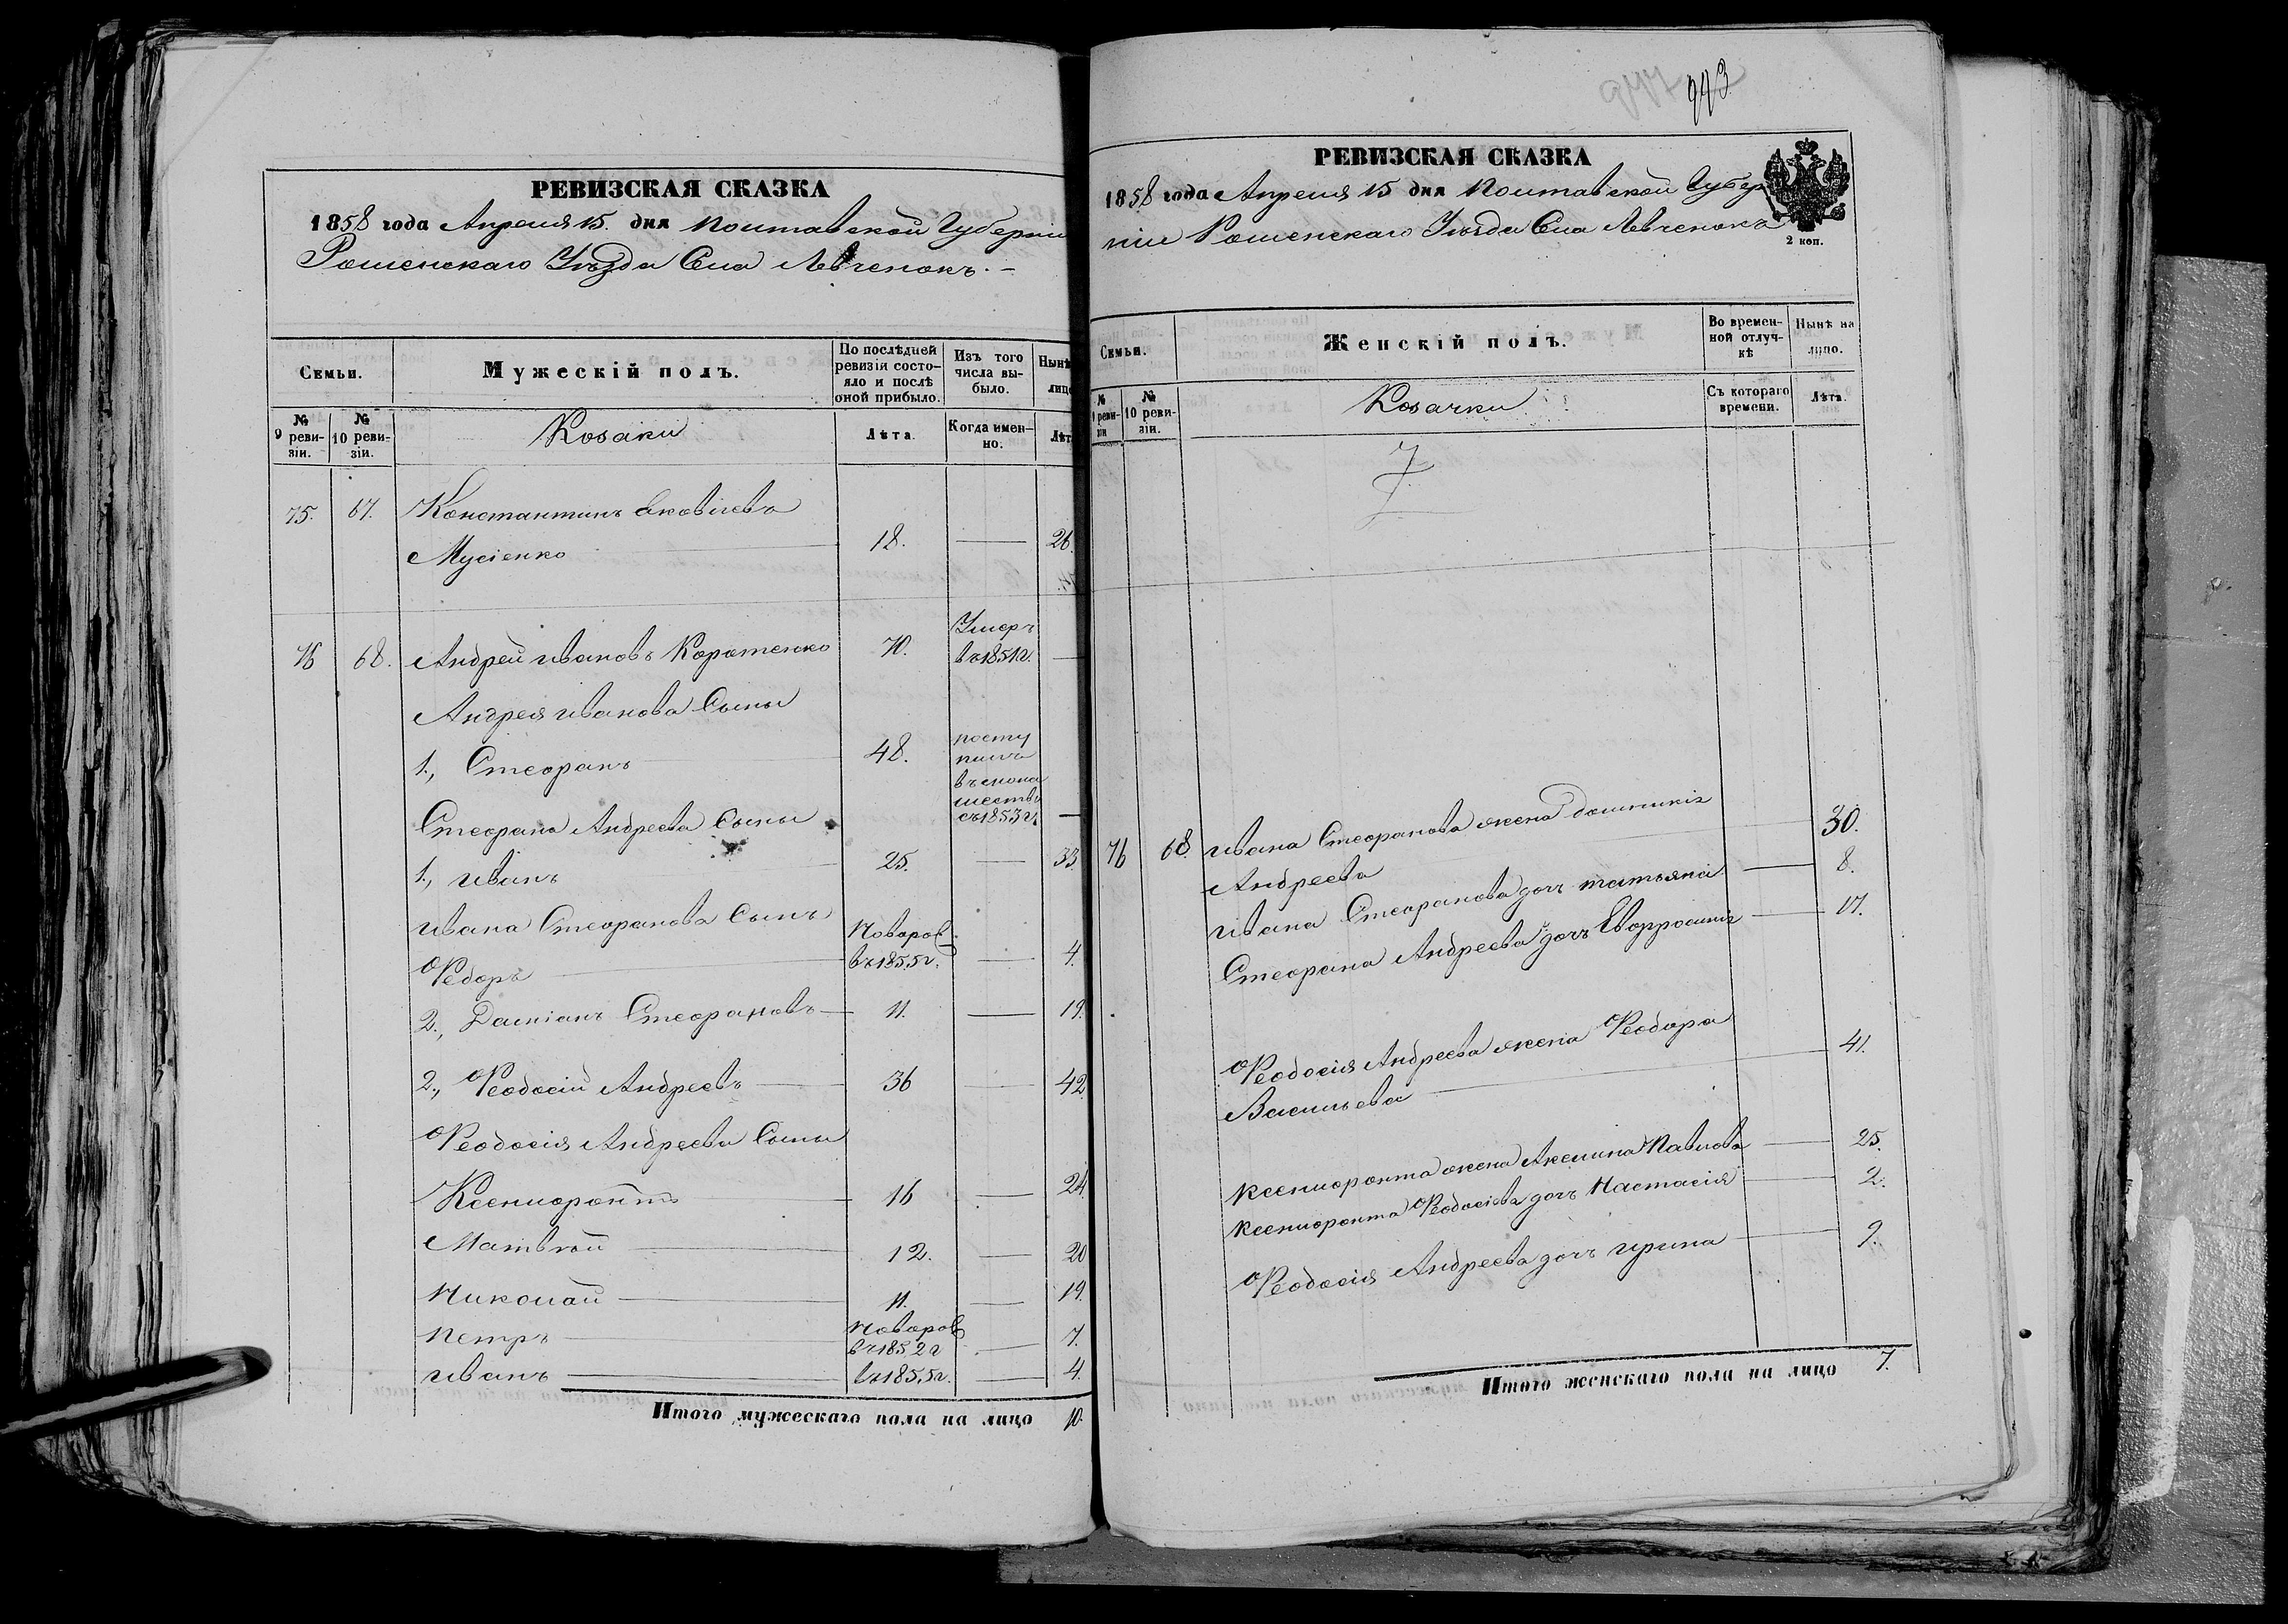 РЕВИЗСКАЯ СКАЗКА
1858 года Апреля 15. дня Полтавской Губернии
Роменскаго Уѣзда Села Левченокъ.
Семьи.
Мужескій полъ.
По послѣдней ревизіи состояло и послѣ оной прибыло.
Изъ того числа выбыло.
Нынѣ
лице
№ 9 ревизіи.
№ 10 ревизіи.
Козаки
Лѣта.
Когда именно.
Лѣт
75. 67. Константинъ Яковлевъ
Мусіенко 18. — 26.
76 68. Андрей Ивановъ Коротенко 70. Умеръ въ 1851 г. —
Андрея Иванова Сыны
1., Стефанъ 48. поступилъ въ монашество съ 1853 г. —
Стефана Андреева Сыны
1., Иванъ 25. — 33.
Ивана Стефанова Сынъ
Федоръ Новорож въ 1855 г. — 4.
2., Даміанъ Стефановъ 11. — 19.
2., Феодосій Андреевъ 36 — 42
Феодосія Андреева Сыны
Ксенофонтъ 16 — 24
Матвѣй 12. — 20
Николай 11. — 19.
Петръ Новорож въ 1852 г — 7.
Иванъ въ 1855 г. — 4.
Итого мужескаго пола на лицо 10.
943
РЕВИЗСКАЯ СКАЗКА
1858 года Апреля 15 дня Полтавской Губер
ніи Роменскаго Уѣзда Села Левченокъ
2 коп.
Семьи.
Женскій полъ.
Во временной отлучкѣ
Нынѣ на лицо.
№ 9 ревизіи
№ 10 ревизіи.
Козачки
Съ котораго времени.
Лѣта.
76 68. Ивана Стефанова жена Домникія
Андреева 30.
Ивана Стефанова дочь Татьяна 8.
Стефана Андреева дочь Евфросинія 17.
Феодосія Андреева жена Феодора
Васильева 41.
Ксенофонта жена Акелина Павлова 25.
Ксенофонта Феодосіева дочь Настасія 2.
Феодосія Андреева дочь Ирина 9.
Итого женскаго пола на лицо 7.